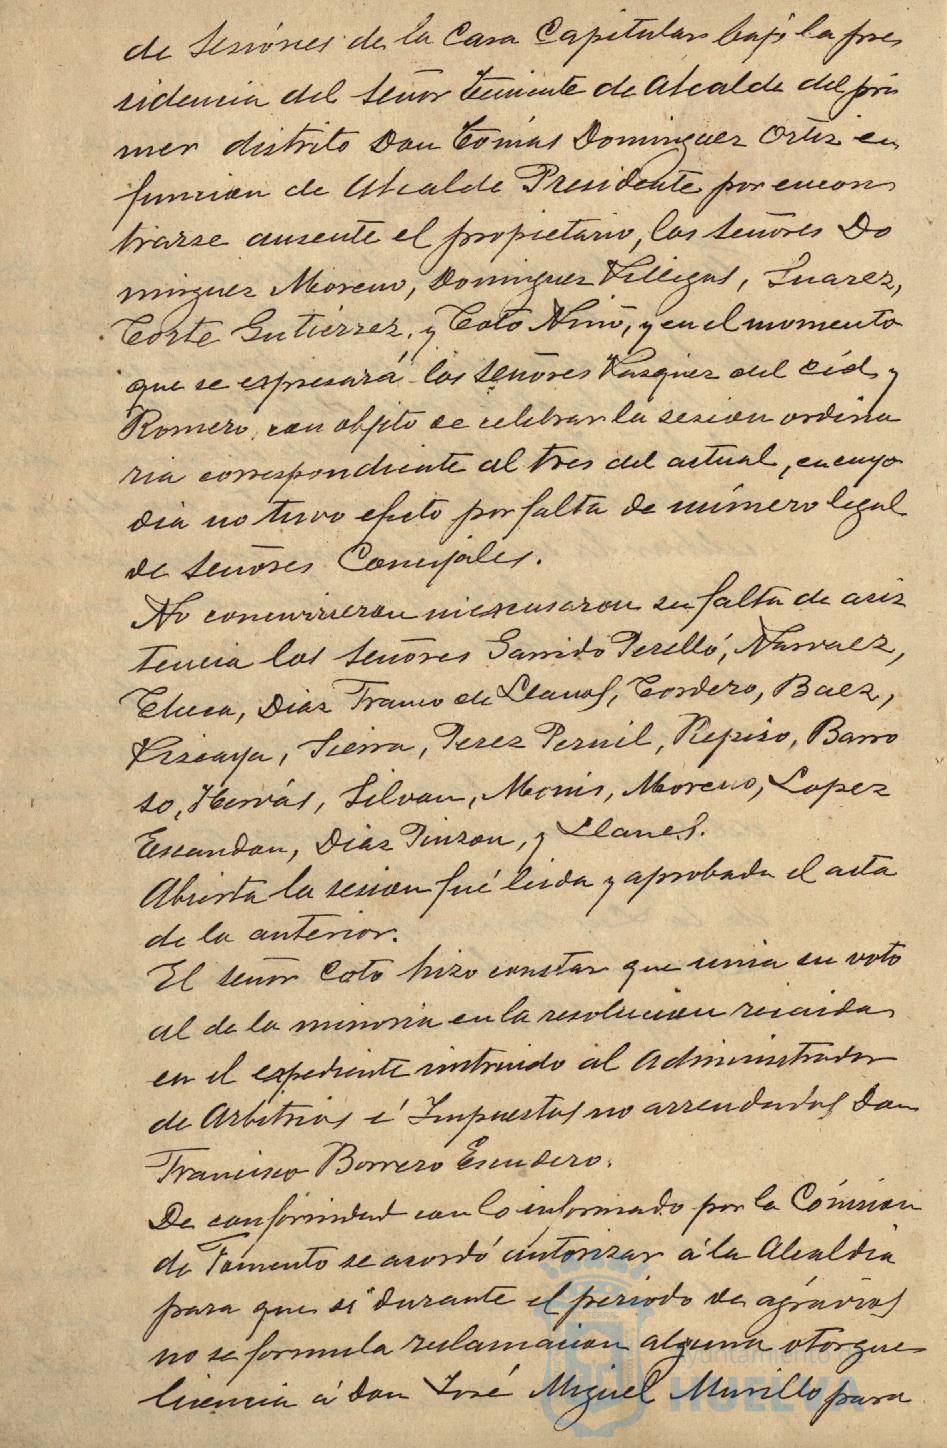 de Sesiónes de la Casa Capitular bajo la pre
sidencia del Señor Teniente de Alcalde del pri
mer distrito Don Tomás Dominguez Ortiz en
funcion de Alcalde Presidente por encon
trarse ausente el propietario, los Señores Do
minguez Moreno, Dominguez Villegas, Suarez,
Corte Gutierrez, y Coto Niño, y en el momento
que se espresará los Señores Vasquez del Cid y
Romero, con objeto de celebrar la sesion ordina
ria correspondiente al tres del actual, en cuyo
dia no tuvo efecto por falta de número legal
de Señores Concejales.
No concurrieron ni escusaron su falta de asis
tencia los Señores Garrido Perelló, Narvaez,
Checa, Diaz Franco de Llanos, Cordero, Baez,
Vizcaya, Sierra, Perez Pernil, Repiso, Barro
so, Hervás, Silvan, Monis, Moreno, Lopez
Escandon, Diaz Pinzon, y Llanes.
Abierta la sesion fué leida y aprobada el acta
de la anterior.
El Señor Coto hizo constar que unia su voto
al de la minoria en la resolucion recaida
en el espediente instruido al Administrador
de Arbitrios é Impuestos no arrendados Don
Francisco Borrero Escudero.
De conformidad con lo informado por la Cómision
de Fomento se acordó autorizar á la Alcaldia
para que si durante el periodo de agravios
no se formula reclamacion alguna otorgue
licencia á Don José Miguel Murillo para
Ayuntamiento
HUELVA